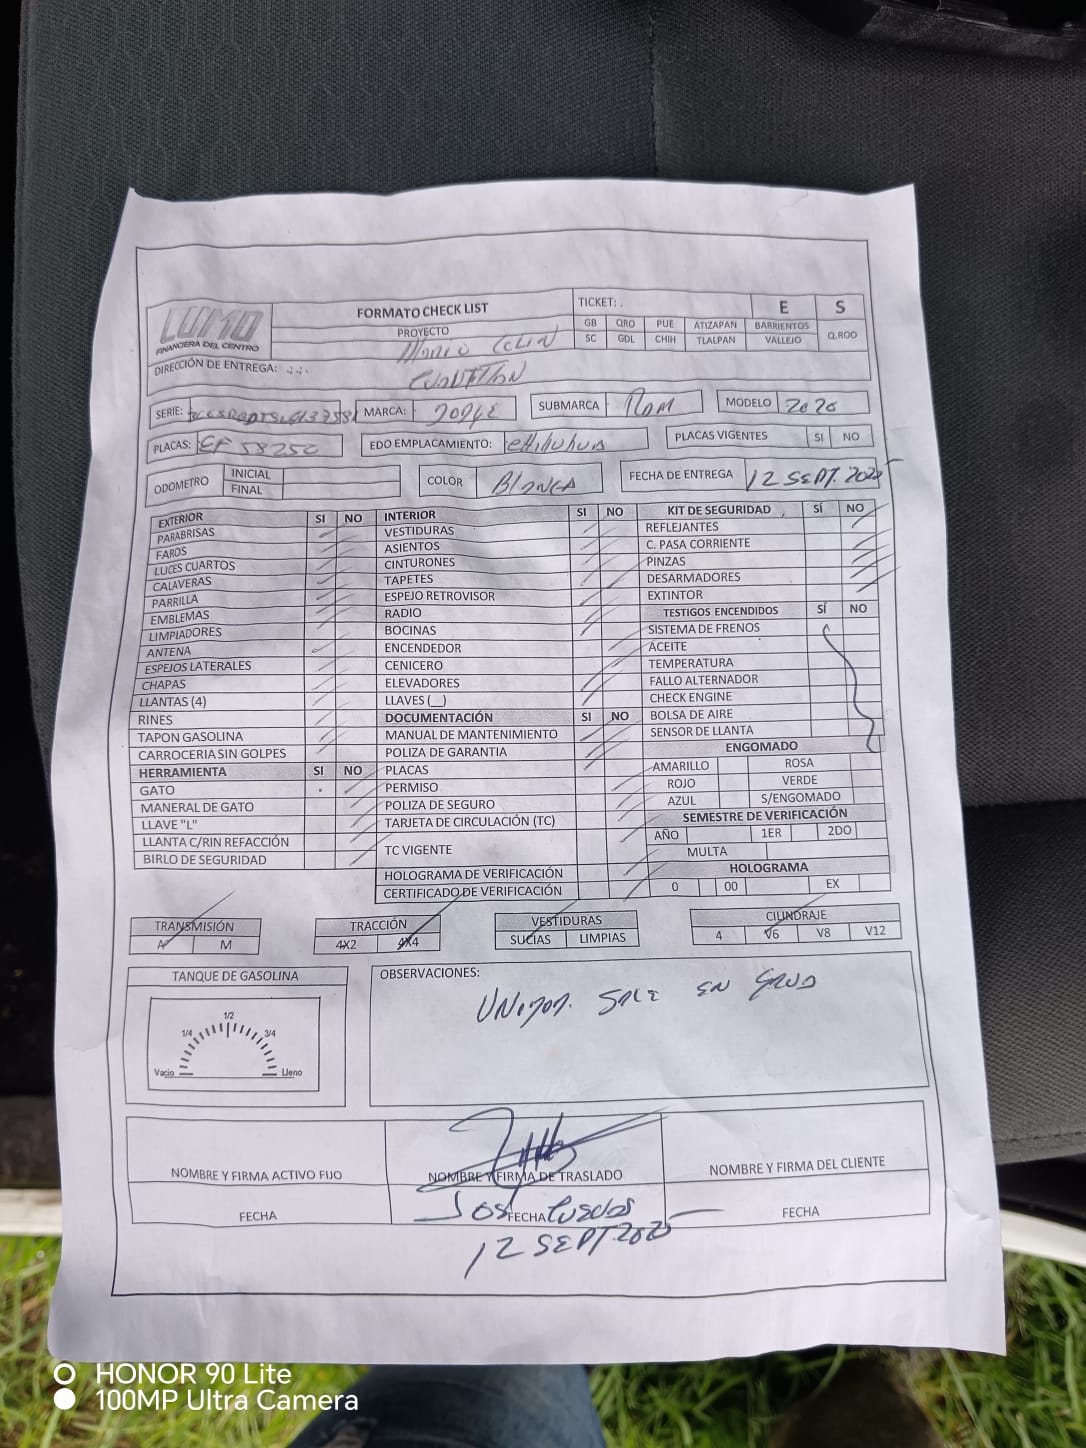 LUMO
FINANCIERA DEL CENTRO
FORMATO CHECK LIST
PROYECTO
Mario Colin
TICKET: .
E
S
GB QRO PUE ATIZAPAN BARRIENTOS
SC GDL CHIH TLALPAN VALLEJO
Q.ROO
DIRECCIÓN DE ENTREGA: .;.
SERIE:
MARCA:
SUBMARCA RAM
MODELO 2020
PLACAS: EF 58252
EDO EMPLACAMIENTO:
PLACAS VIGENTES SI NO
ODOMETRO INICIAL
FINAL
COLOR BLANCA
FECHA DE ENTREGA 12 SEPT. 2025
EXTERIOR SI NO
PARABRISAS
FAROS
LUCES CUARTOS
CALAVERAS
PARRILLA
EMBLEMAS
LIMPIADORES
ANTENA
ESPEJOS LATERALES
CHAPAS
LLANTAS (4)
RINES
TAPON GASOLINA
CARROCERIA SIN GOLPES
HERRAMIENTA SI NO
GATO
MANERAL DE GATO
LLAVE "L"
LLANTA C/RIN REFACCIÓN
BIRLO DE SEGURIDAD
INTERIOR SI NO
VESTIDURAS
ASIENTOS
CINTURONES
TAPETES
ESPEJO RETROVISOR
RADIO
BOCINAS
ENCENDEDOR
CENICERO
ELEVADORES
LLAVES (__)
DOCUMENTACIÓN SI NO
MANUAL DE MANTENIMIENTO
POLIZA DE GARANTIA
PLACAS
PERMISO
POLIZA DE SEGURO
TARJETA DE CIRCULACIÓN (TC)
TC VIGENTE
HOLOGRAMA DE VERIFICACIÓN
CERTIFICADO DE VERIFICACIÓN
KIT DE SEGURIDAD SÍ NO
REFLEJANTES
C. PASA CORRIENTE
PINZAS
DESARMADORES
EXTINTOR
TESTIGOS ENCENDIDOS SÍ NO
SISTEMA DE FRENOS
ACEITE
TEMPERATURA
FALLO ALTERNADOR
CHECK ENGINE
BOLSA DE AIRE
SENSOR DE LLANTA
ENGOMADO
AMARILLO ROSA
ROJO VERDE
AZUL S/ENGOMADO
SEMESTRE DE VERIFICACIÓN
AÑO 1ER 2DO
MULTA
HOLOGRAMA
0 00 EX
TRANSMISIÓN
A M
TRACCIÓN
4X2 4X4
VESTIDURAS
SUCIAS LIMPIAS
CILINDRAJE
4 V6 V8 V12
TANQUE DE GASOLINA
1/2
1/4 3/4
Vacio Lleno
OBSERVACIONES:
UNIDAD. SALE EN GRUA
NOMBRE Y FIRMA ACTIVO FIJO
FECHA
NOMBRE Y FIRMA DE TRASLADO
FECHA
12 SEPT 2025
NOMBRE Y FIRMA DEL CLIENTE
FECHA
HONOR 90 Lite
100MP Ultra Camera